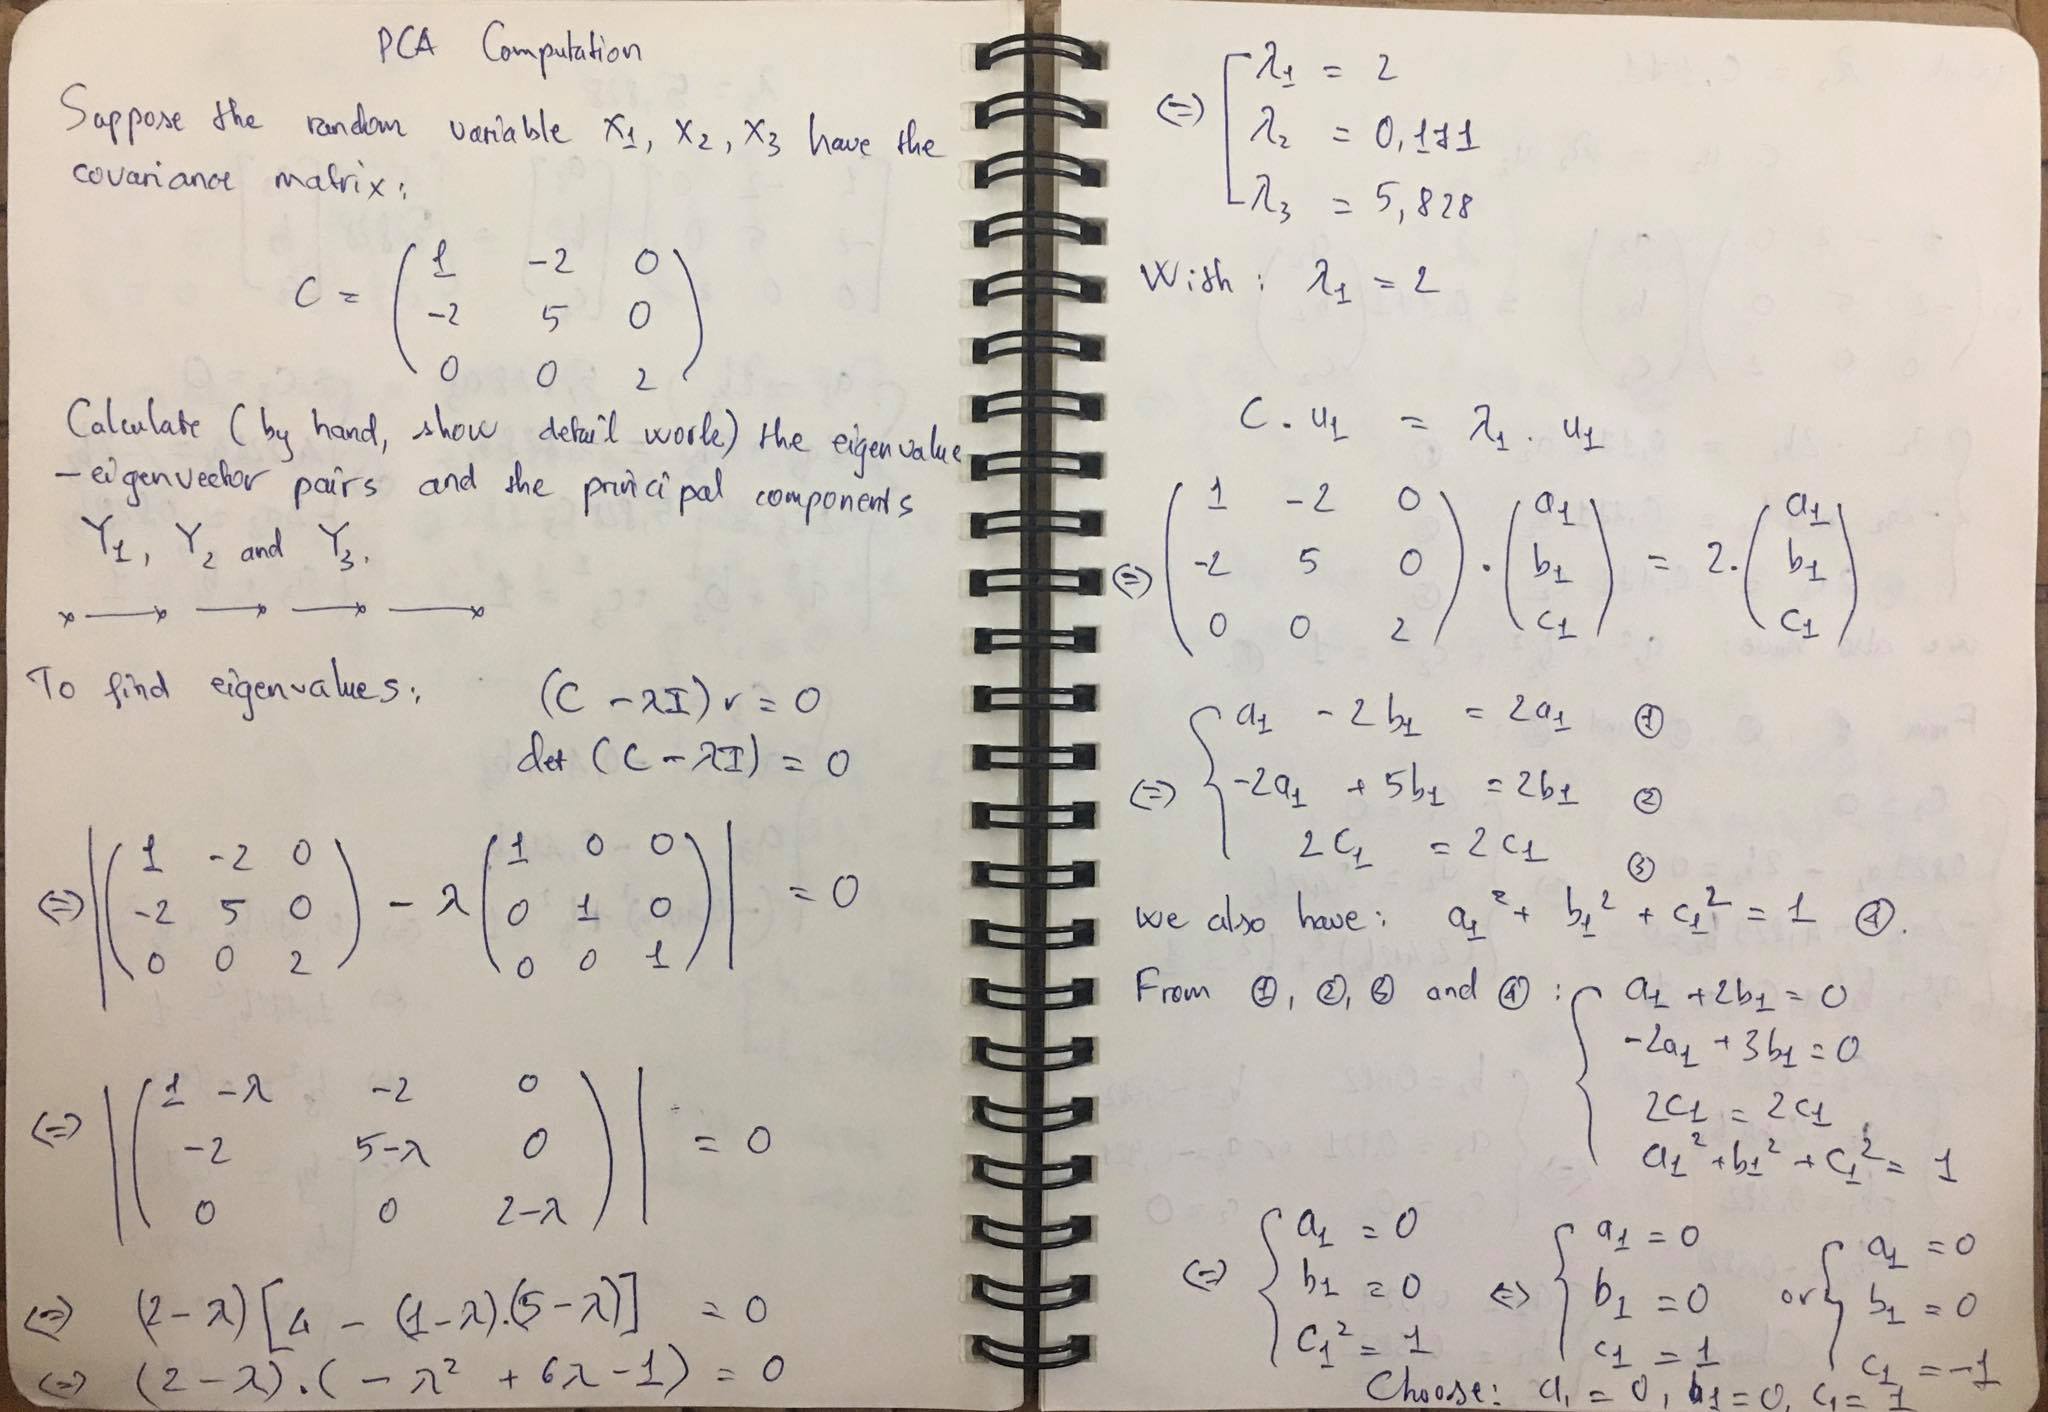 PCA Computation
Suppose the random variable X1, X2, X3 have the
covariance matrix:
C = ( 1 -2 0
-2 5 0
0 0 2 )
Calculate (by hand, show detail work) the eigenvalue
- eigenvector pairs and the principal components
Y1, Y2 and Y3.
To find eigenvalues: (C - λI) v = 0
det (C - λI) = 0
<=> | ( 1 -2 0
-2 5 0
0 0 2 ) - λ ( 1 0 0
0 1 0
0 0 1 ) | = 0
<=> | ( 1-λ -2 0
-2 5-λ 0
0 0 2-λ ) | = 0
<=> (2-λ) [4 - (1-λ).(5-λ)] = 0
<=> (2-λ).(-λ² + 6λ - 1) = 0
<=> [ λ1 = 2
λ2 = 0,171
λ3 = 5,828
With: λ1 = 2
C . u1 = λ1 . u1
<=> ( 1 -2 0
-2 5 0
0 0 2 ) . ( a1
b1
c1 ) = 2. ( a1
b1
c1 )
<=> { a1 - 2b1 = 2a1 ①
-2a1 + 5b1 = 2b1 ②
2c1 = 2c1 ③
we also have: a1² + b1² + c1² = 1 ④.
From ①, ②, ③ and ④ : { a1 + 2b1 = 0
-2a1 + 3b1 = 0
2c1 = 2c1
a1² + b1² + c1² = 1
<=> { a1 = 0
b1 = 0
c1² = 1
<=> { a1 = 0
b1 = 0
c1 = 1
or { a1 = 0
b1 = 0
c1 = -1
Choose: a1 = 0, b1 = 0, c1 = 1